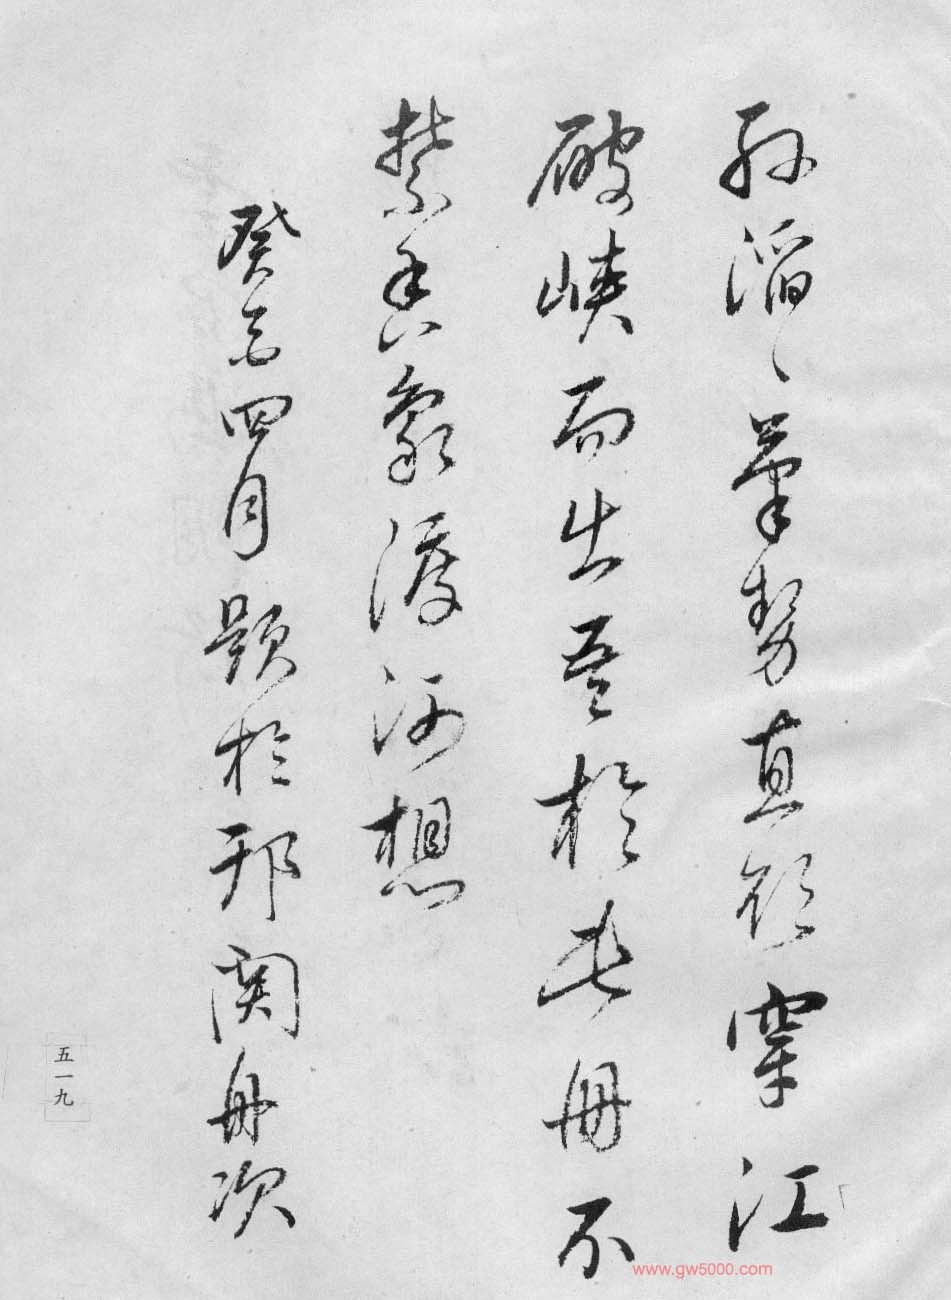 滔〻筆勢直欲穿江
破峽而出吾於此冊不
禁香象渡河想
癸亥四月題於邗關舟次
五一九
www.gw5000.com